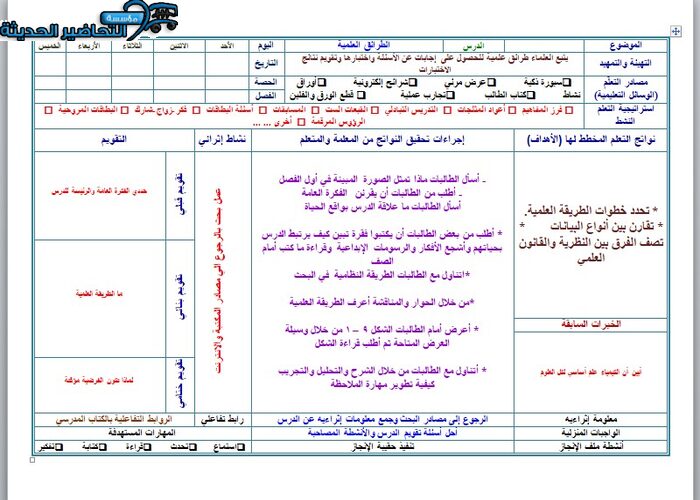 مؤسسة
التحاضير الحديثة
الموضوع
الدرس
الطرائق العلمية
اليوم
الأحد
الاثنين
الثلاثاء
الأربعاء
الخميس
التهيئة والتمهيد
يتبع العلماء طرائق علمية للحصول على إجابات عن الأسئلة واختبارها وتقويم نتائج
الاختبارات
التاريخ
مصادر التعلم
(الوسائل التعليمية)
سبورة ذكية
عرض مرئي
شرائح إلكترونية
أوراق
نشاط
كتاب الطالب
تجارب عملية
قطع الورق والفلين
الحصة
الفصل
استراتيجية التعلم
النشط
فرز المفاهيم
أعواد المثلجات
التدريس التبادلي
القبعات الست
المسابقات
أسئلة البطاقات
فكر .زواج.شارك
البطاقات المروحية
الرؤوس المرقمة
أخرى ... ...
نواتج التعلم المخطط لها (الأهداف)
إجراءات تحقيق النواتج من المعلمة والمتعلم
نشاط إثرائي
التقويم
* تحدد خطوات الطريقة العلمية.
* تقارن بين أنواع البيانات *
تصف الفرق بين النظرية والقانون
العلمي
الخبرات السابقة
أبين أن الكيمياء علم أساسي لكل العلوم
ـ أسأل الطالبات ماذا تمثل الصورة المبينة في أول الفصل
ـ أطلب من الطالبات أن يقرئن الفكرة العامة
أسأل الطالبات ما علاقة الدرس بواقع الحياة
* أطلب من بعض الطالبات أن يكتبوا فقرة تبين كيف يرتبط الدرس
بحياتهم وأشجع الأفكار والرسومات الإبداعية وقراءة ما كتب أمام
الصف
*اتناول مع الطالبات الطريقة النظامية في البحث
*من خلال الحوار والمناقشة أعرف الطريقة العلمية
* أعرض أمام الطالبات الشكل ٩ – ١ من خلال وسيلة
العرض المتاحة ثم أطلب قراءة الشكل
* أتناول مع الطالبات من خلال الشرح والتحليل والتجريب
كيفية تطوير مهارة الملاحظة
عمل بحث بالرجوع الي مصادر المكتبة والانترنت
تقويم قبلي
حددي الفكرة العامة والرئيسة للدرس
تقويم بنائي
ما الطريقة العلمية
تقويم ختامي
لماذا تكون الفرضية مؤقتة
معلومة إثرائيه
الرجوع إلى مصادر البحث وجمع معلومات إثراءيه عن الدرس
رابط تفاعلي
الروابط التفاعلية بالكتاب المدرسي
الواجبات المنزلية
أحل أسئلة تقويم الدرس والأنشطة المصاحبة
المهارات المستهدفة
أنشطة ملف الإنجاز
تنفيذ حقيبة الإنجاز
استماع
تحدث
قراءة
كتابة
تفكير